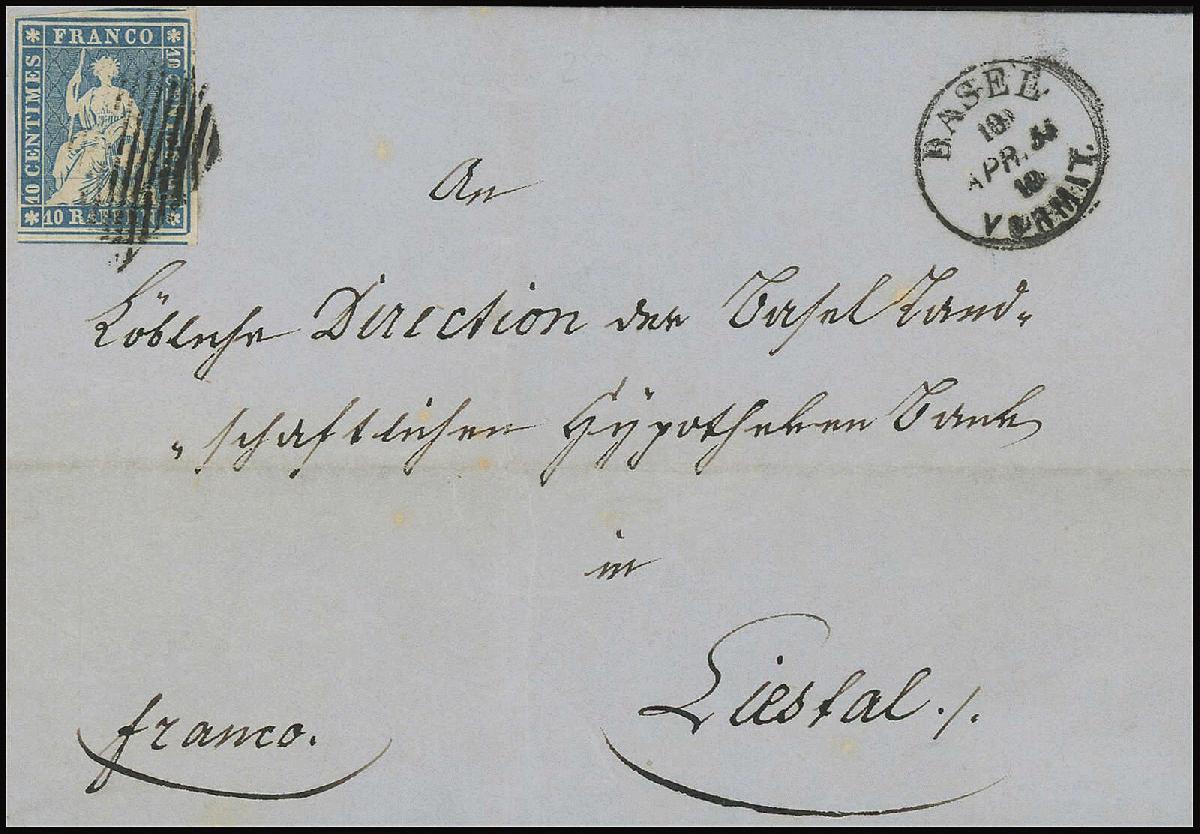 FRANCO
10 CENTIMES
10 RAPPEN
BASEL
10
APR. 56
10
VORMIT.
An
Löbliche Direction der Basel Land-
"schaftlichen Hÿpotheken Bank
in
Liestal ./.
franco.